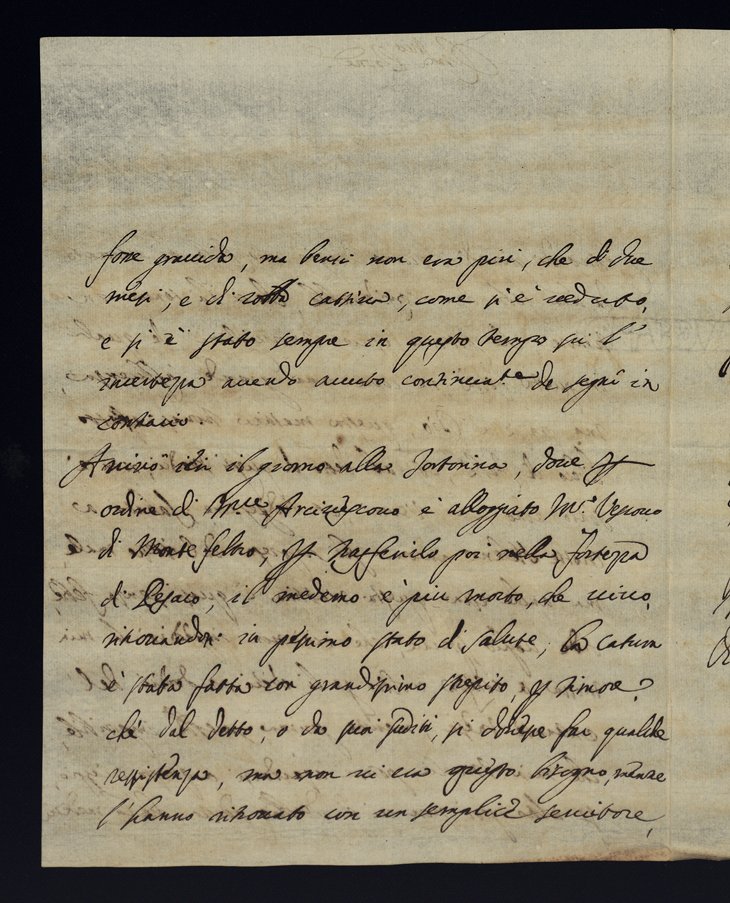 fosse gravida, ma bensi non era più, che di due
mesi, e di rotta cattiva, come si è veduto,
e si è stato sempre in questo tempo sù l'
incertezza avendo avuto continuam.te de segni in
contrario.
Arrivò ieri il giorno alla Tortorina, dove p
ordine di M.re Arcivescovo è alloggiato M.r Vescovo
di Monte feltro, p trasferirlo poi nella fortezza
di Pesaro, il medemo è più morto, che vivo,
ritrovandosi in pessimo stato di salute, la catura
è stata fatta con grandissimo strepito, p timore
che dal detto, o da suoi sudditi, si dovesse far qualche
ressistenza, ma non vi era questo bisogno, mentre
l'hanno ritrovato con un semplice servitore,